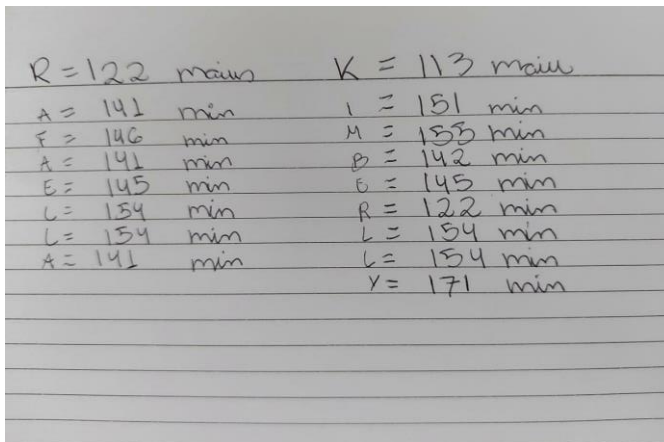 R = 122 maius
A = 141 min
F = 146 min
A = 141 min
E = 145 min
L = 154 min
L = 154 min
A = 141 min
K = 113 maiu
I = 151 min
M = 155 min
B = 142 min
E = 145 min
R = 122 min
L = 154 min
L = 154 min
Y = 171 min